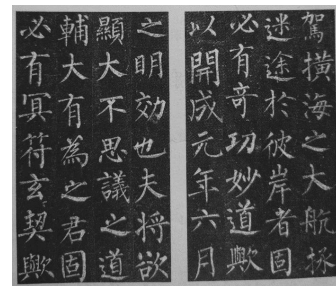 駕橫海之大航拯
迷途於彼岸者固
必有奇功妙道歟
以開成元年六月
之明効也夫将欲
顯大不思議之道
輔大有為之君固
必有冥符玄契歟